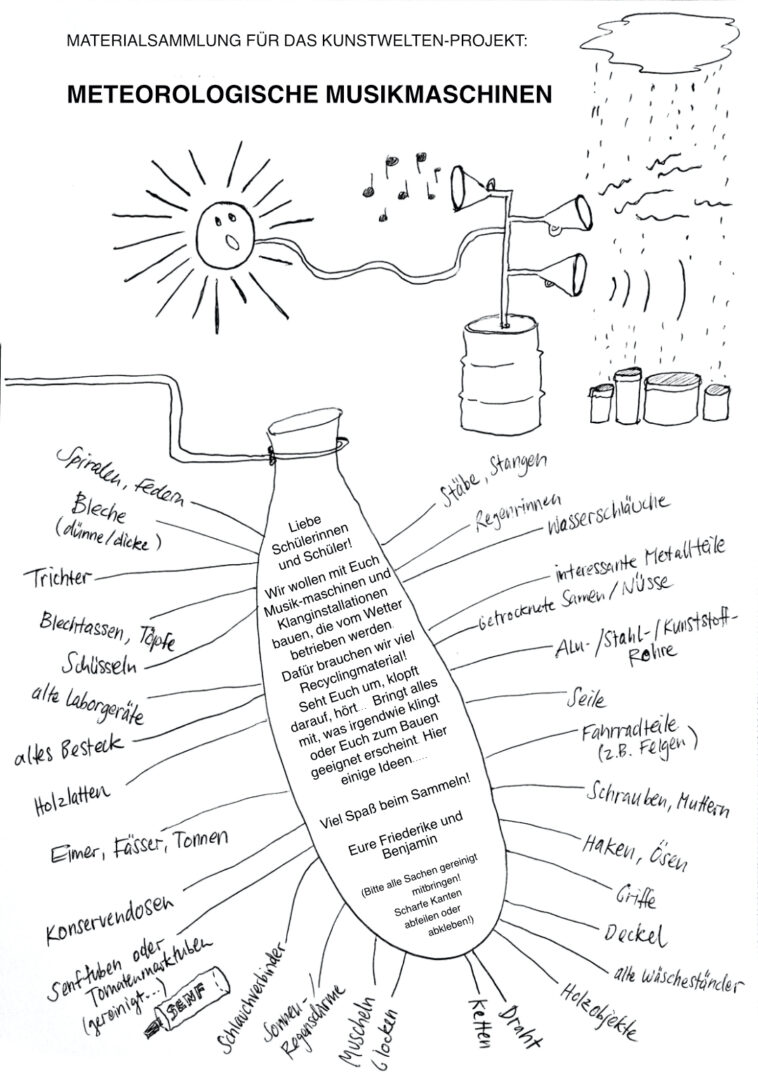 MATERIALSAMMLUNG FÜR DAS KUNSTWELTEN-PROJEKT:
METEOROLOGISCHE MUSIKMASCHINEN
Spiralen, Federn
Bleche
(dünne/dicke)
Trichter
Blechtassen, Töpfe
Schüsseln
alte Laborgeräte
altes Besteck
Holzlatten
Eimer, Fässer, Tonnen
Konservendosen
Senftuben oder
Tomatenmarktuben
(gereinigt...)
SENF
Liebe
Schülerinnen
und Schüler!
Wir wollen mit Euch
Musik-maschinen und
Klanginstallationen
bauen, die vom Wetter
betrieben werden.
Dafür brauchen wir viel
Recyclingmaterial!
Seht Euch um, klopft
darauf, hört... Bringt alles
mit, was irgendwie klingt
oder Euch zum Bauen
geeignet erscheint. Hier
einige Ideen.....
Viel Spaß beim Sammeln!
Eure Friederike und
Benjamin
(Bitte alle Sachen gereinigt
mitbringen!
Scharfe Kanten
abfeilen oder
abkleben!)
Stäbe, Stangen
Regenrinnen
Wasserschläuche
interessante Metallteile
getrocknete Samen / Nüsse
Alu-/Stahl-/Kunststoff-
Rohre
Seile
Fahrradteile
(z.B. Felgen)
Schrauben, Muttern
Haken, Ösen
Griffe
Deckel
alte Wäscheständer
Holzobjekte
Draht
Ketten
Glocken
Muscheln
Sonnen-/
Regenschirme
Schlauchverbinder